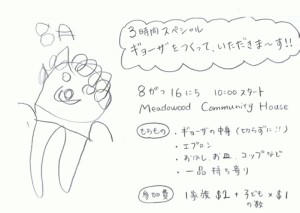 8A
3時間スペシャル
ギョーザをつくって、いただきま〜す!!
8がつ16にち 10:00スタート
Meadowood Community House
もちもの
・ギョーザの中身(切らずに!!)
・エプロン
・おはし お皿 コップなど
・一品持ち寄り
参加費 1家族 $2 + 子ども × $1
の数